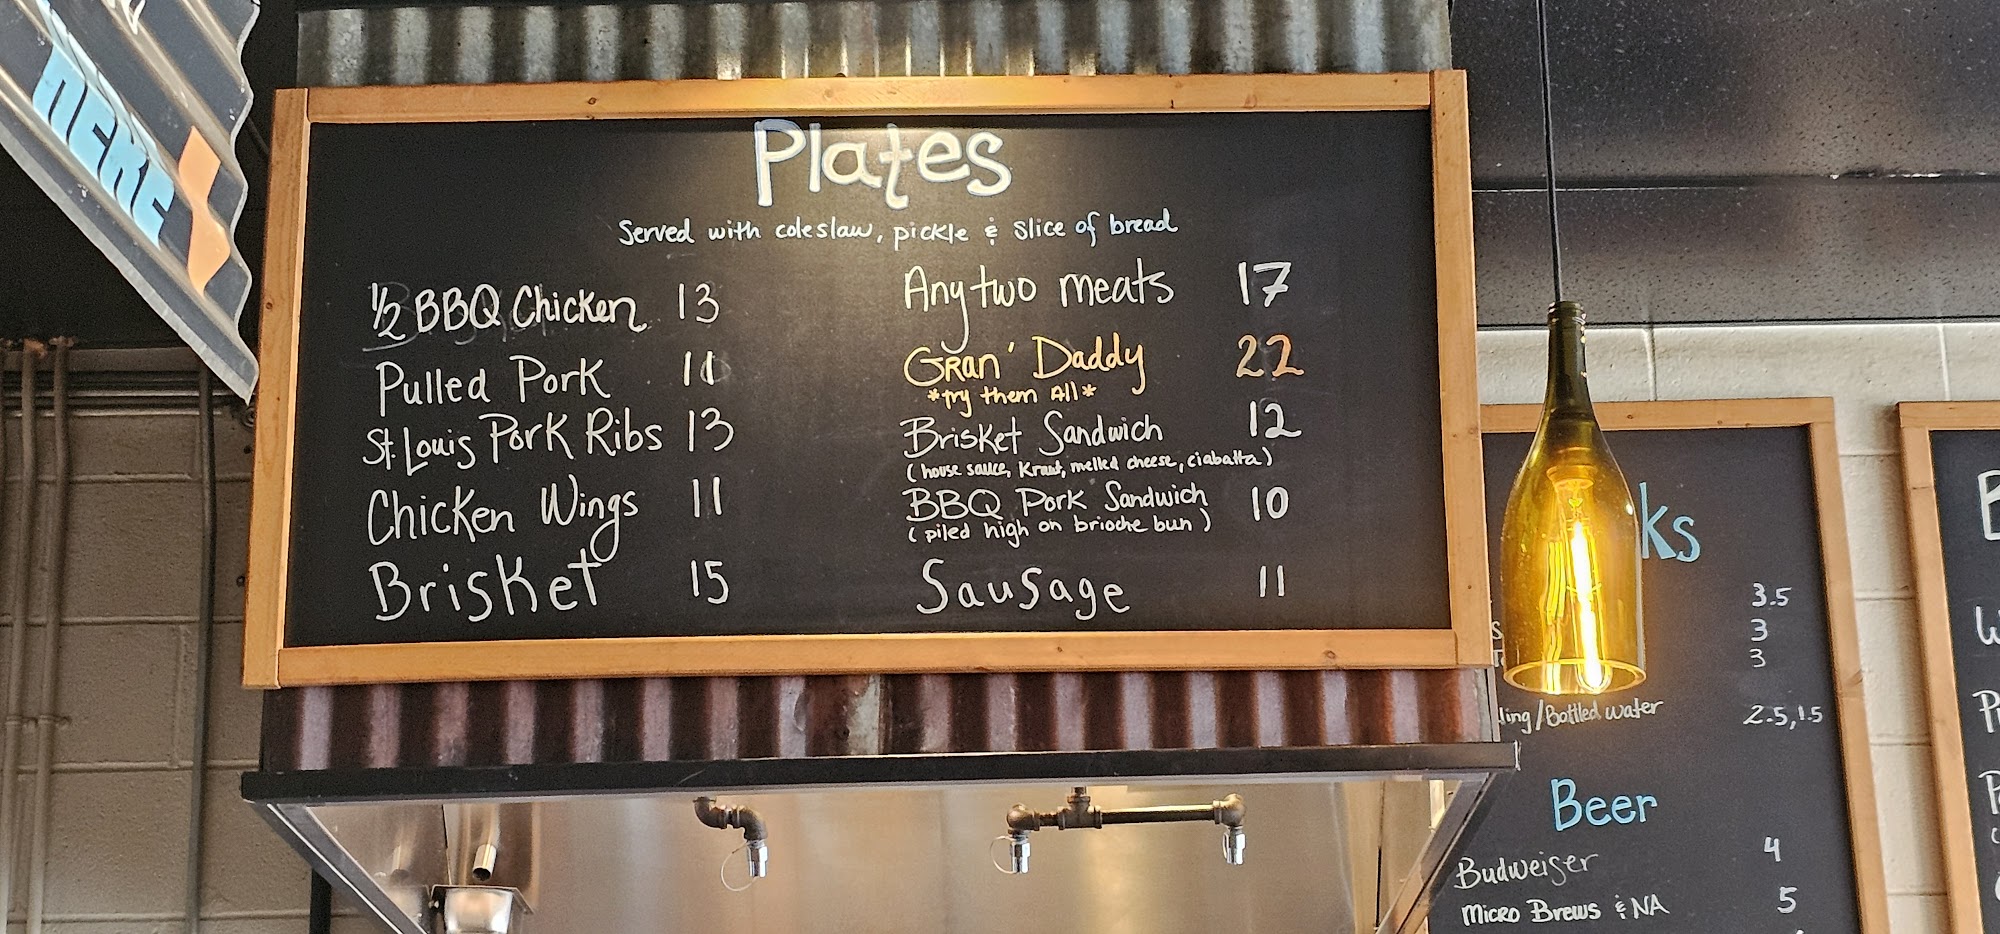 Plates
Served with coleslaw, pickle & slice of bread
1/2 BBQ Chicken 13
Pulled Pork 11
St. Louis Pork Ribs 13
Chicken Wings 11
Brisket 15
Any two meats 17
Gran' Daddy 22
*try them All*
Brisket Sandwich 12
(house sauce, Kraut, melted cheese, ciabatta)
BBQ Pork Sandwich 10
(piled high on brioche bun)
Sausage 11
3.5
3
3
/Bottled water 2.5, 1.5
Beer
Budweiser 4
Micro Brews & NA 5